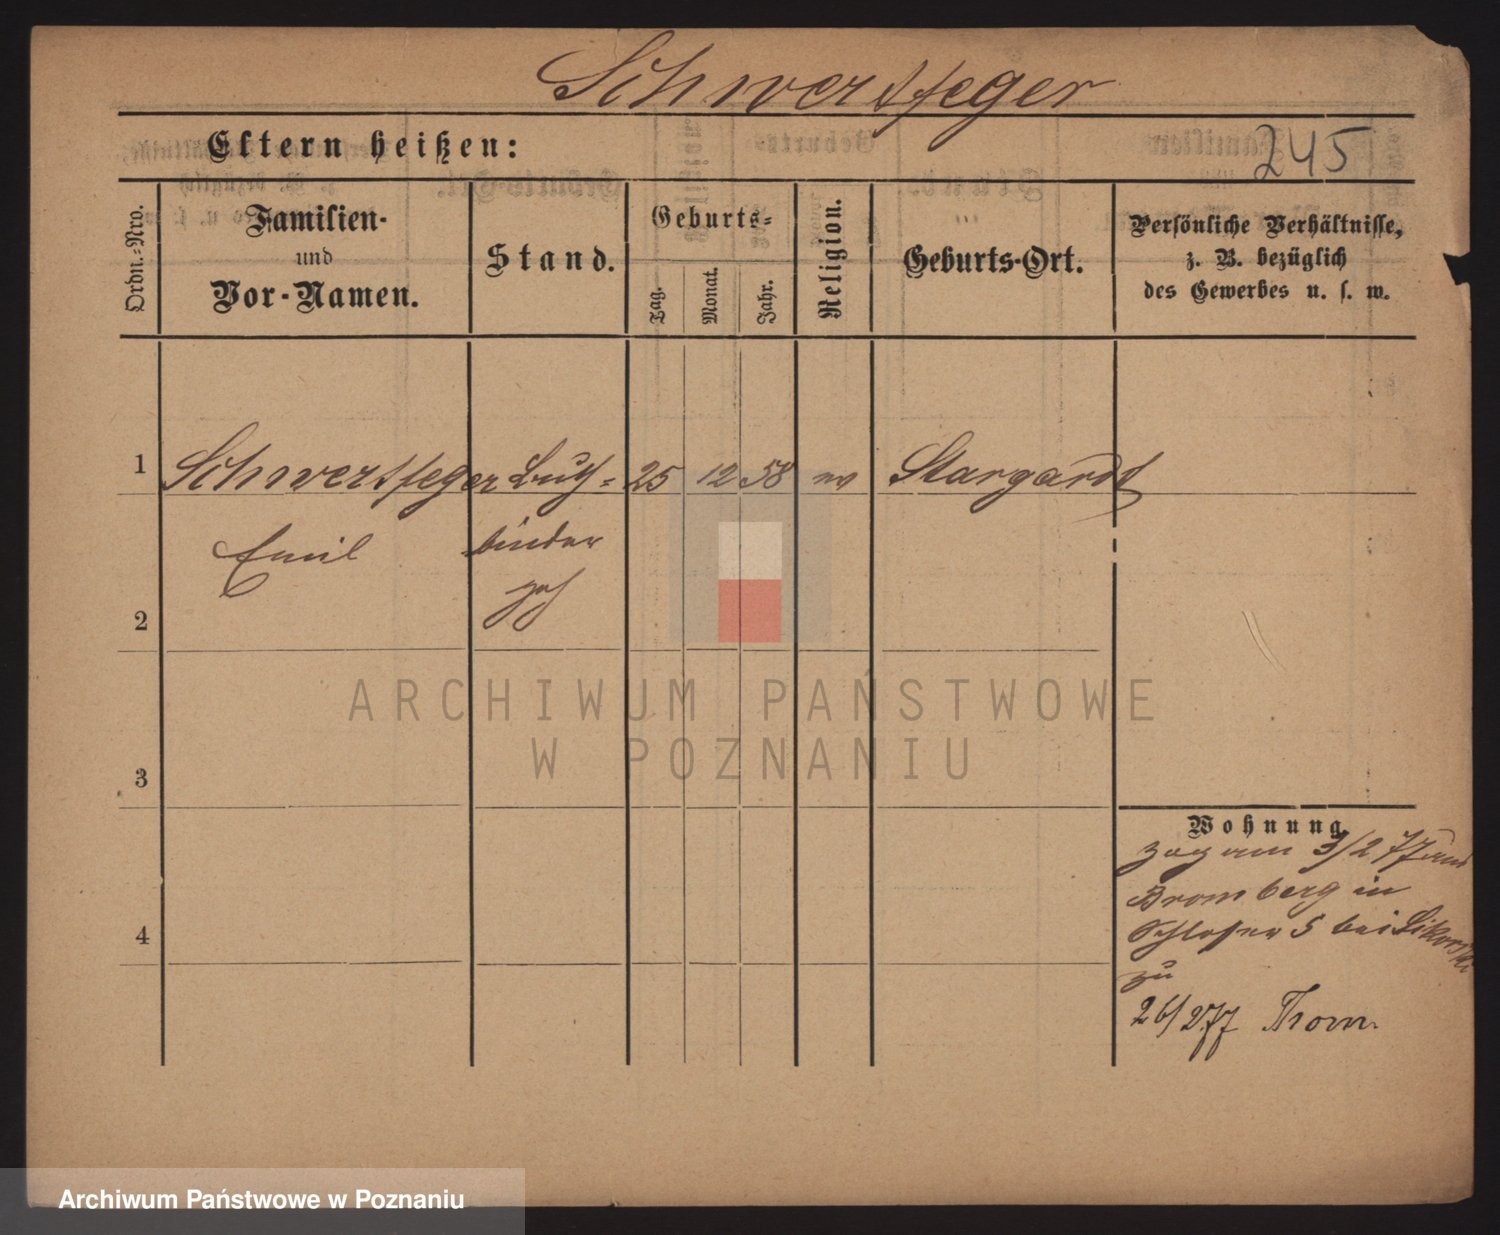 Schwertfeger
Eltern heißen:
245
Ordn.-Nro.
Familien-
und
Vor-Namen.
Stand.
Geburts-
Tag.
Monat.
Jahr.
Religion.
Geburts-Ort.
Persönliche Verhältnisse,
z. B. bezüglich
des Gewerbes u. s. w.
1 Schwertfeger Buch= 25 12 58 ev Stargardt
Emil binder
2
ARCHIWUM PAŃSTWOWE
W POZNANIU
3
Wohnung
zog am 3/2 77 aus
Bromberg in
Schlosser 5 bei Sikorski
4
zu
26/2 77 Thorn.
Archiwum Państwowe w Poznaniu